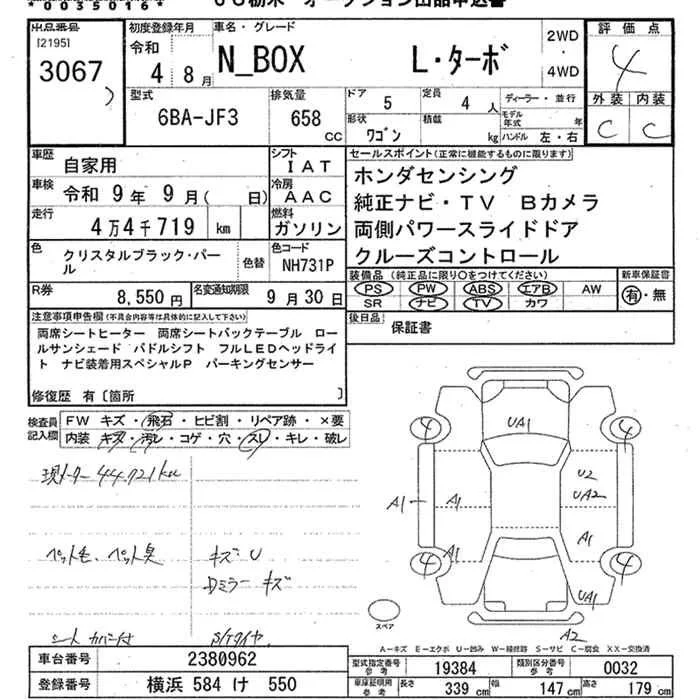 *0055016*
出品番号
[2195]
3067
初度登録年月
令和
4 8月
車名・グレード
N_BOX L・ターボ
2WD
・
4WD
評価点
4
外装 内装
C C
型式
6BA-JF3
排気量
658 CC
ドア 5
定員 4 人
形状 ワゴン
積載 kg
ディーラー・並行
モデル年式 年
ハンドル 左・右
車歴 自家用
シフト IAT
車検 令和 9年 9月( 日)
冷房 AAC
走行 4万4千719 km
燃料 ガソリン
色 クリスタルブラック・パール
色替
色コード NH731P
R券 8,550円
名変通知期限 9月30日
セールスポイント(正常に機能するものに限ります)
ホンダセンシング
純正ナビ・TV Bカメラ
両側パワースライドドア
クルーズコントロール
装備品 (純正品に限り○をつけてください)
PS PW ABS エアB AW
SR ナビ TV カワ
新車保証書
有・無
後日品 保証書
注意事項申告欄(不具合内容等は具体的に記入して下さい)
両席シートヒーター 両席シートバックテーブル ロー
ルサンシェード パドルシフト フルLEDヘッドライ
ト ナビ装着用スペシャルP パーキングセンサー
修復歴 有〔箇所 〕
検査員記入欄
FW キズ・飛石・ヒビ割・リペア跡・×要
内装・キズ・汚レ・コゲ・穴・スレ・キレ・破レ
現メーター 44,721km
ペット毛、ペット臭 キズ U
Dミラー キズ
シートカバー付 S/Tタイヤ
UA1
4 4
U2
UA2
A1 A1 A1
A1
4 4
UA1
スペア
A2
A-キズ E-エクボ U-凹み W-補修跡 S-サビ C-腐食 XX-交換済
車台番号 2380962
登録番号 横浜 584 け 550
型式指定番号参考 19384
類別区分番号参考 0032
車庫証明用参考 長さ 339 cm 幅 147 cm 高さ 179 cm